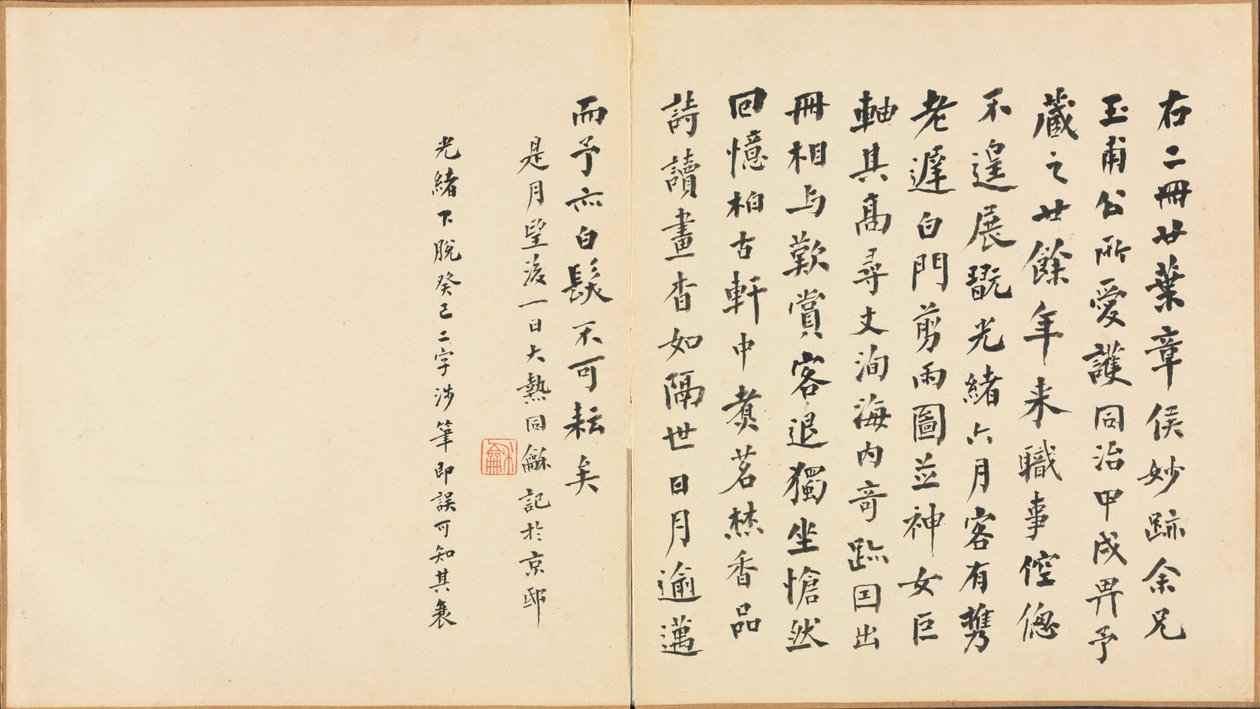 右二冊廿葉章侯妙跡余兄
玉甫公所愛護同治甲戌畀予
藏之廿餘年来職事倥偬
不遑展翫光緒六月客有攜
老遲白門剪雨圖並神女巨
軸其高尋丈洵海内奇跡因出
冊相与歎賞客退獨坐愴然
回憶柏古軒中煑茗爇香品
詩讀畫杳如隔世日月逾邁
而予亦白髮不可耘矣
是月望後一日大熱同龢記於京邸
光緒下脫癸巳二字涉筆即誤可知其衰